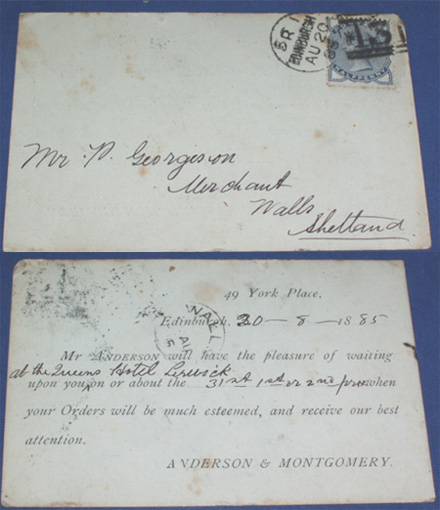 BR 1
EDINBURGH
AU 20
85
131
HALFPENNY
Mr P. Georgeson
Merchant
Walls
Shetland
49 York Place.
Edinburgh. 20 - 8 - 1885
WALL
AU
Mr ANDERSON will have the pleasure of waiting
at the Queens Hotel Lerwick
upon you on or about the 31st 1st or 2nd prox when
your Orders will be much esteemed, and receive our best
attention.
ANDERSON & MONTGOMERY.